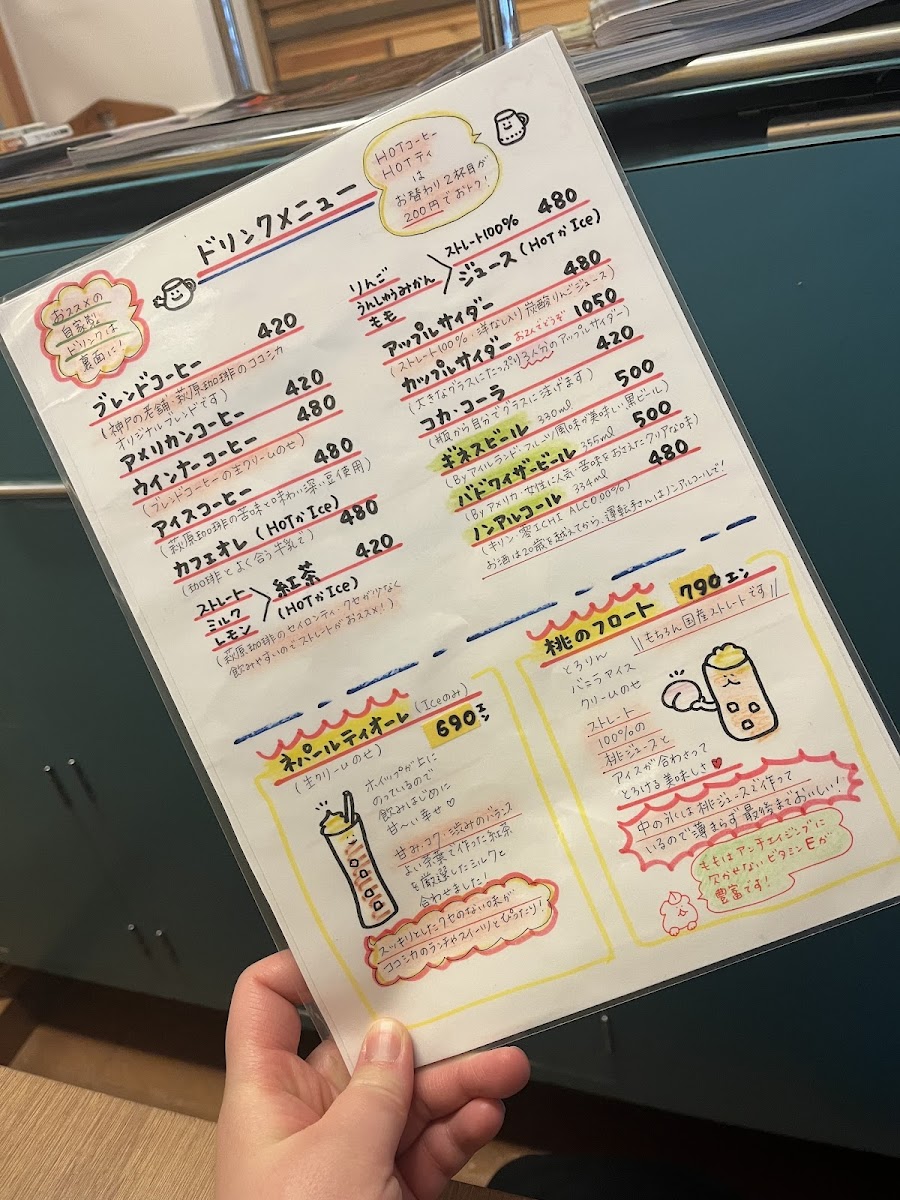 ドリンクメニュー
HOTコーヒー
HOTティ
は
お替わり2杯目が
200円でおトク!
おススメの
自家製
ドリンクは
裏面に!
ブレンドコーヒー 420
(神戸の老舗・萩原珈琲のココシカ
オリジナルブレンドです)
アメリカンコーヒー 420
ウインナーコーヒー 480
(ブレンドコーヒーの生クリームのせ)
アイスコーヒー 480
(萩原珈琲の苦味と味わい深い豆使用)
カフェオレ (HOTかIce) 480
(珈琲とよく合う牛乳で)
ストレート
ミルク
レモン
紅茶 420
(HOTかIce)
(萩原珈琲のセイロンティ・クセがなく
飲みやすいのでストレートがおススメ!)
りんご
うんしゅうみかん
もも
ストレート100% 480
ジュース (HOTかIce)
アップルサイダー 480
(ストレート100%・洋なし入り炭酸りんごジュース)
カップルサイダー お2人でどうぞ 1050
(大きなグラスにたっぷり3人分のアップルサイダー)
コカ・コーラ 420
(瓶から自分でグラスに注げます)
ギネスビール 330ml 500
(By アイルランド・フルーツ風味が美味しい黒ビール)
バドワイザービール 355ml 500
(By アメリカ・女性に人気・苦味をおさえたクリアな味)
ノンアルコール 334ml 480
(キリン・零ICHI ALC0.00%)
お酒は20歳を越えてから、運転手さんはノンアルコールで!
ネパールティオーレ (Iceのみ)
(生クリームのせ) 690エン
ホイップが上に
のっているので
飲みはじめに
甘〜い幸せ♡
甘み、コク・渋みのバランス
よい茶葉で作った紅茶
を厳選したミルクと
合わせました!
スッキリとしたクセのない味が
ココシカのランチやスイーツとぴったり!
桃のフロート 790エン
\\もちろん国産ストレートです//
とろりん
バニラアイス
クリームのせ
ストレート
100%の
桃ジュースと
アイスが合わさって
とろける美味しさ♥
中の氷には桃ジュースで作って
いるので薄まらず最後までおいしい!
ももはアンチエイジングに
欠かせないビタミンEが
豊富です!